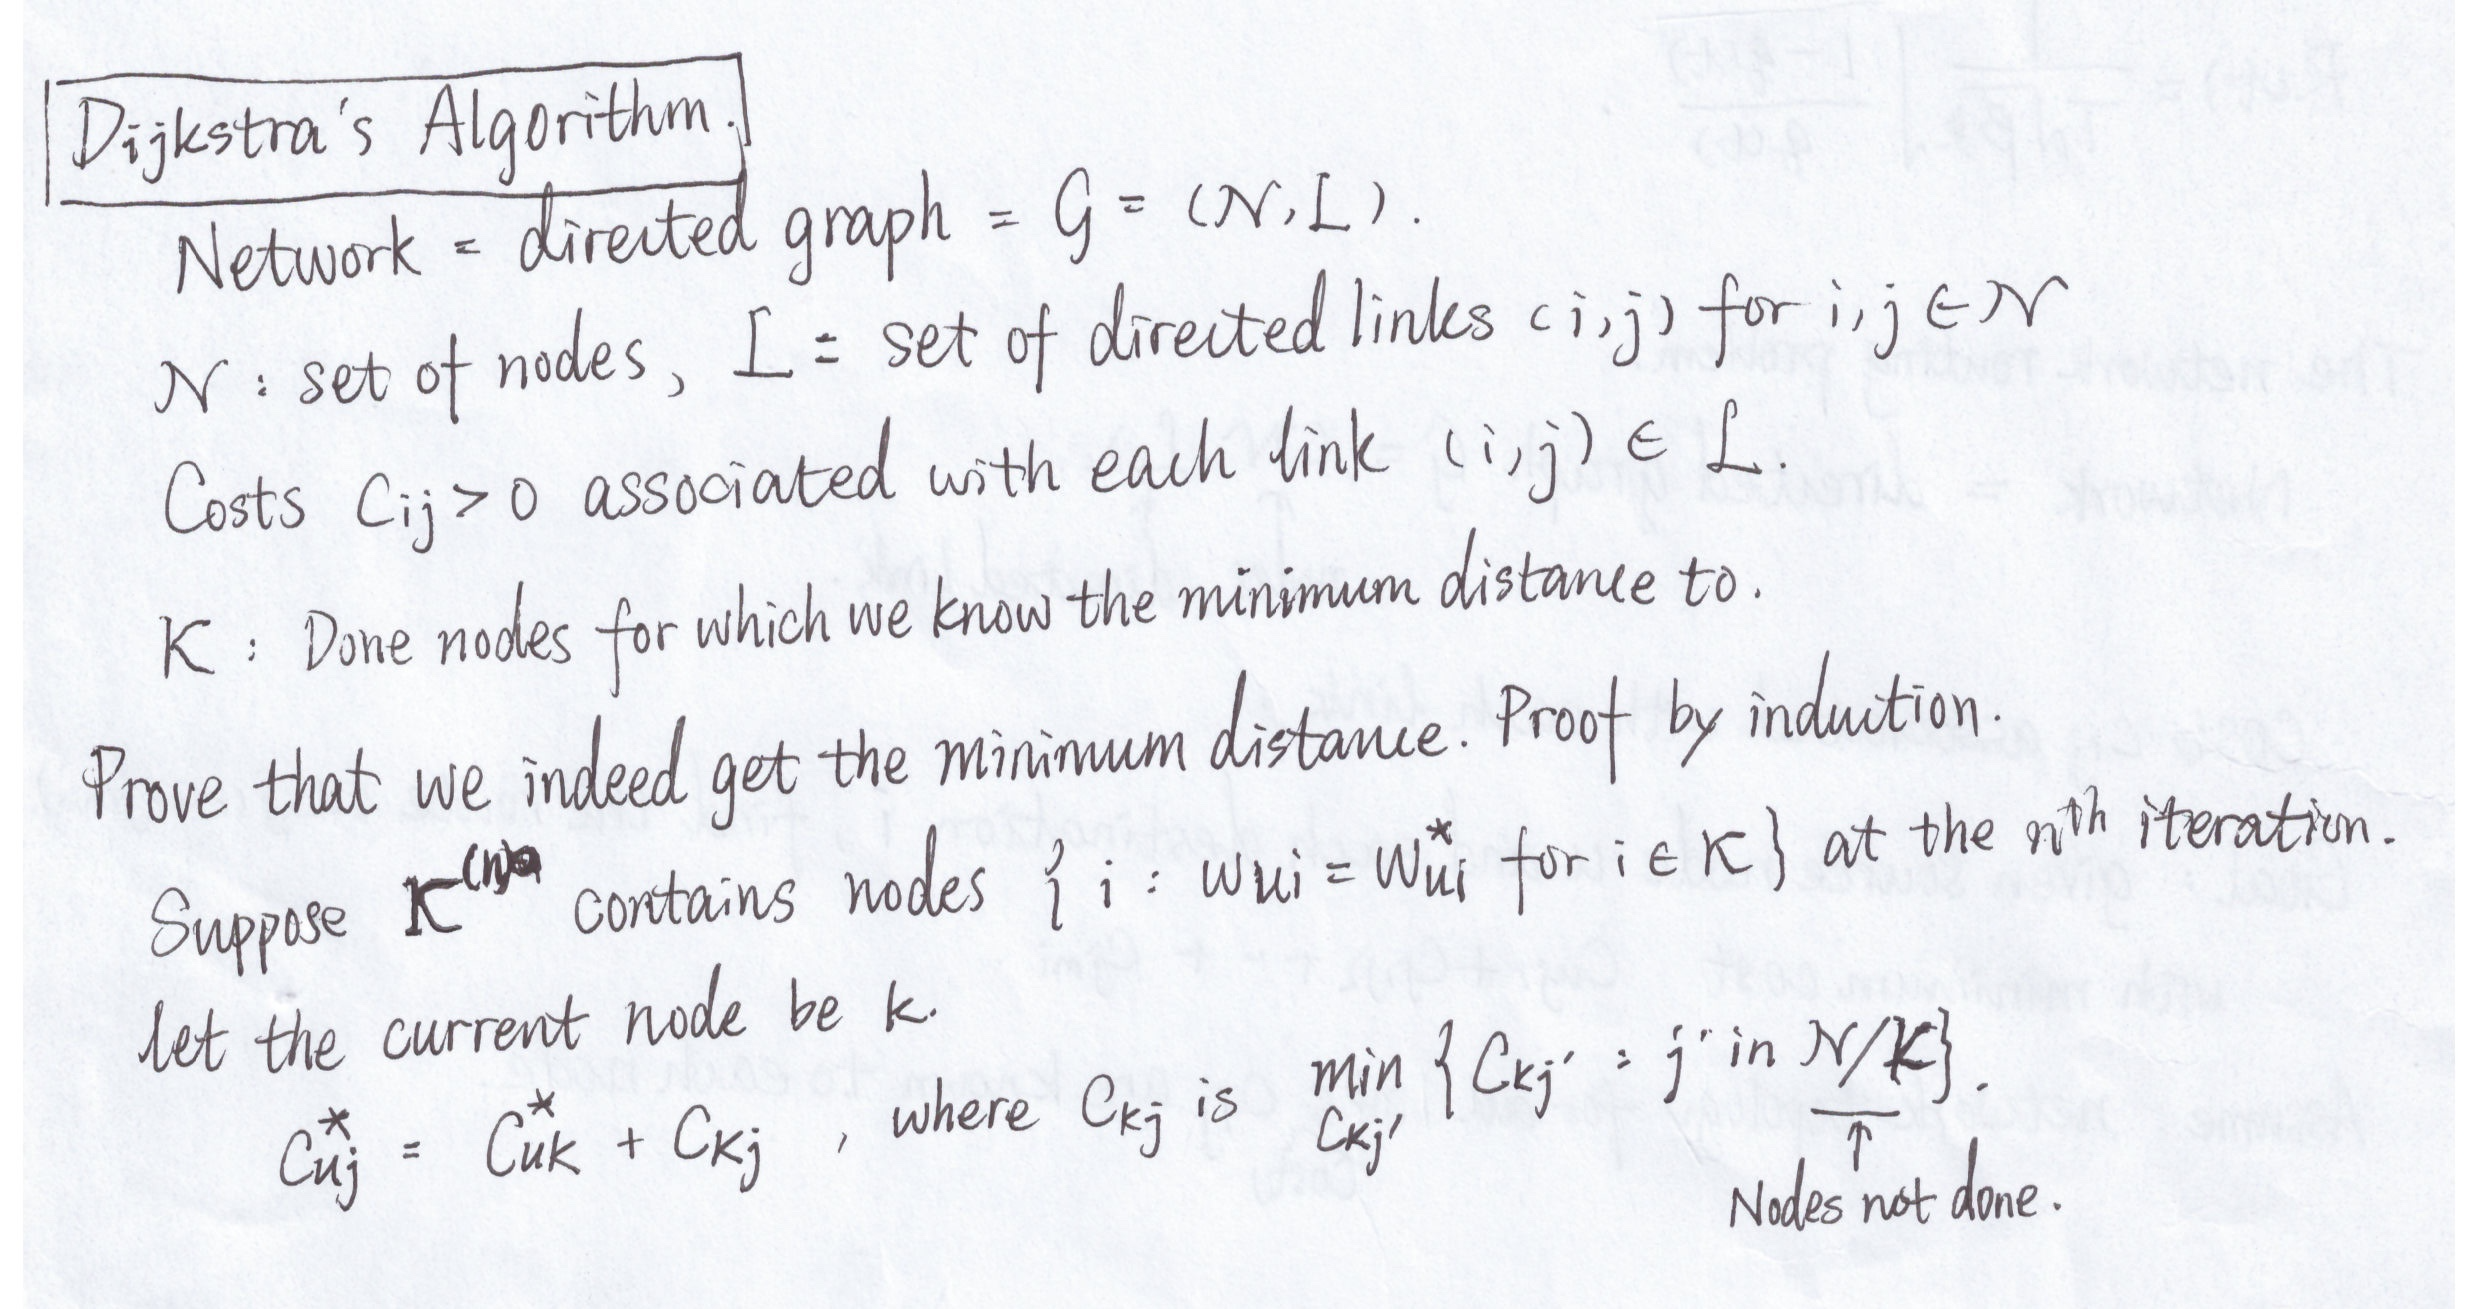 Dijkstra's Algorithm.
Network = directed graph = G = (N, L).
N : set of nodes, L = set of directed links (i,j) for i,j ∈ N
Costs Cij > 0 associated with each link (i,j) ∈ L.
K : Done nodes for which we know the minimum distance to.
Prove that we indeed get the minimum distance. Proof by induction.
Suppose K^(n) contains nodes { i : Wui = W*ui for i ∈ K } at the nth iteration.
let the current node be k.
C*uj = C*uk + Ckj , where Ckj is min {Ckj' : j' in N/K}.
Ckj'
↑
Nodes not done.